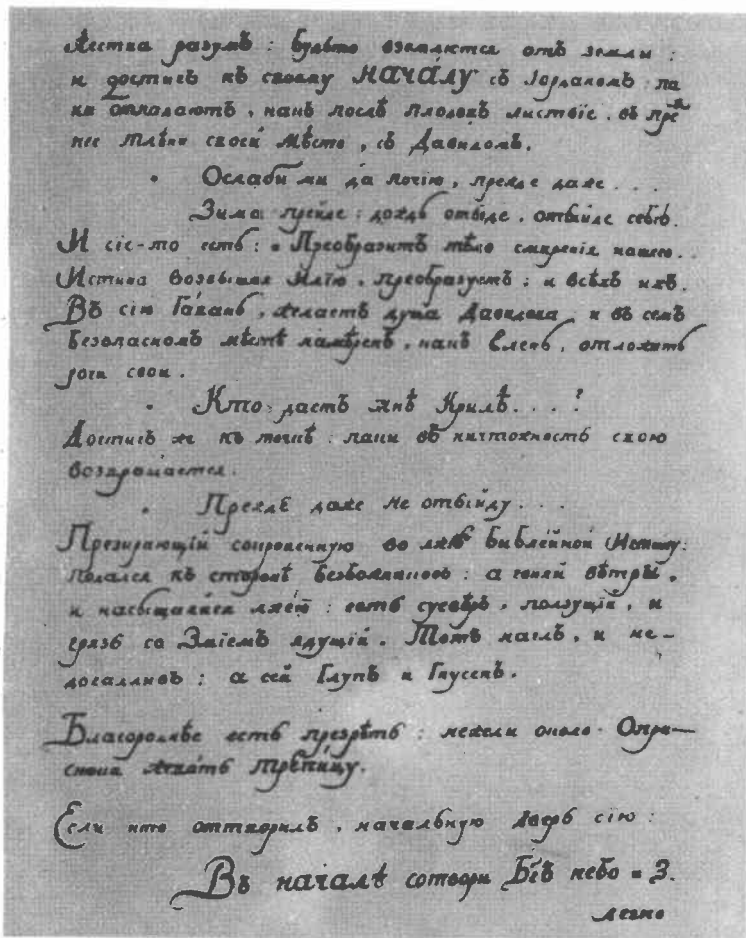 Лестна разумъ: будьто вземлются отъ земли:
и достигъ къ своему НАЧАЛУ съ Іорданомъ па
ки отпадаютъ, какъ послѣ плодовъ листвіе, въ
своей мѣсто, съ Давидомъ.
Ослаби ми да почію, прежде даже...
Зима прейде: дождь отъиде, отъиде себѣ.
И сіе-то есть: Преобразитъ тѣло смиренія нашего..
Истина возвышая Илію, преобразуетъ: и всѣхъ ихъ.
Въ сію Гавань, желаетъ душа Давидова, и въ семъ
Безопасномъ мѣстѣ намѣренъ, какъ Елень, отложить
роги свои.
Кто дастъ мнѣ Крилѣ...?
Достигъ же къ точкѣ: паки въ ничтожность свою
возвращается.
Прежде даже не отъиду...
Презирающій сокровенную во лжѣ Библейной Истину:
подался къ сторонѣ Безбожниковъ: а гоняй вѣтры,
и насыщаяйся лжею: есть суевѣръ, ползущій, и
грязь со Зміемъ ядущій. Тотъ наглъ, и не-
догадливъ: а сей Глупъ и Гнусенъ.
Благороднѣе есть презрѣть: нежели около Опрѣ-
сноки лежать
Если кто оттворилъ, начальную дверь сію:
Въ началѣ сотвори Бгъ небо и З.
легко